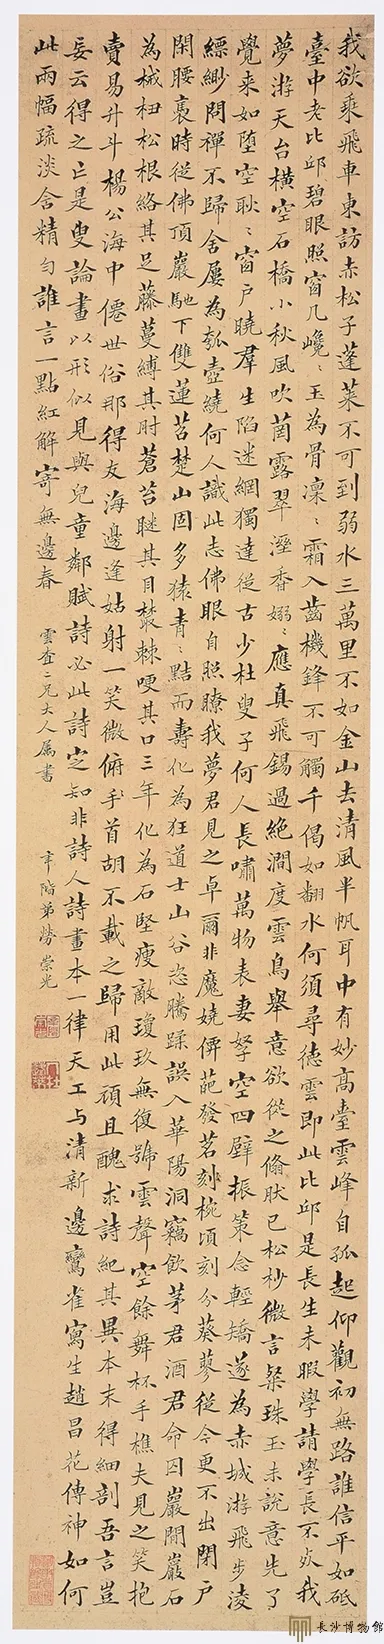 我欲乘飛車東訪赤松子蓬萊不可到弱水三萬里不如金山去清風半帆耳中有妙高臺雲峰自孤起仰觀初無路誰信平如砥
臺中老比邱碧眼照窗几巉〻玉為骨凜〻霜入齒機鋒不可觸千偈如翻水何須尋德雲即此比邱是長生未暇學請學長不死我
夢游天台橫空石橋小秋風吹菌露翠溼香嫋〻應真飛錫過絕澗度雲鳥舉意欲從之翛肰已松杪微言粲珠玉未說意先了
覺来如墮空耿〻窗戶曉羣生陷迷網獨達從古少杜叟子何人長嘯萬物表妻孥空四壁振策念輕矯遂為赤城游飛步淩
縹緲問禪不歸舍屨為瓠壺繞何人識此志佛眼自照瞭我夢君見之卓爾非魔嬈僊葩發茗刻椀頃刻分葵蓼從今更不出閉戶
閑腰褭時從佛頂巖馳下雙蓮沼楚山固多猿青〻黠而壽化為狂道士山谷恣騰蹂誤入華陽洞竊飲茅君酒君命囚巖間巖石
為械杻松根絡其足藤蔓縛其肘蒼苔瞇其目叢棘哽其口三年化為石堅瘦敵瓊玖無復號雲聲空餘舞杯手樵夫見之笑抱
賣易升斗楊公海中僊世俗那得友海邊逢姑射一笑微俯手首胡不載之歸用此頑且醜求詩紀其異本末得細剖吾言豈
妄云得之亡是叟論畫以形似見與兒童鄰賦詩必此詩定知非詩人詩畫本一律天工与清新邊鸞雀寫生趙昌花傳神如何
此兩幅疏淡含精匀誰言一點紅解寄無邊春
雲查二兄大人屬書
辛階弟勞崇光
長沙博物館